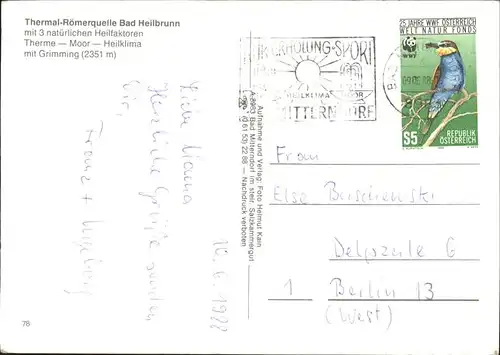 Thermal-Römerquelle Bad Heilbrunn
mit 3 natürlichen Heilfaktoren
Therme — Moor — Heilklima
mit Grimming (2351 m)
Herzliche Grüße senden
Franz + Ingeborg
10.6.1988
78
Aufnahme und Verlag: Foto Helmut Kain
A-8983 Bad Mitterndorf im steir. Salzkammergut
(0 61 53) 22 88 — Nachdruck verboten
ERHOLUNG-SPORT
HEILKLIMA
MITTERNDORF
25 JAHRE WWF ÖSTERREICH
WELT NATUR FONDS
WWF
S5
REPUBLIK
ÖSTERREICH
Frau
Else
6
1 Berlin 13
(West)